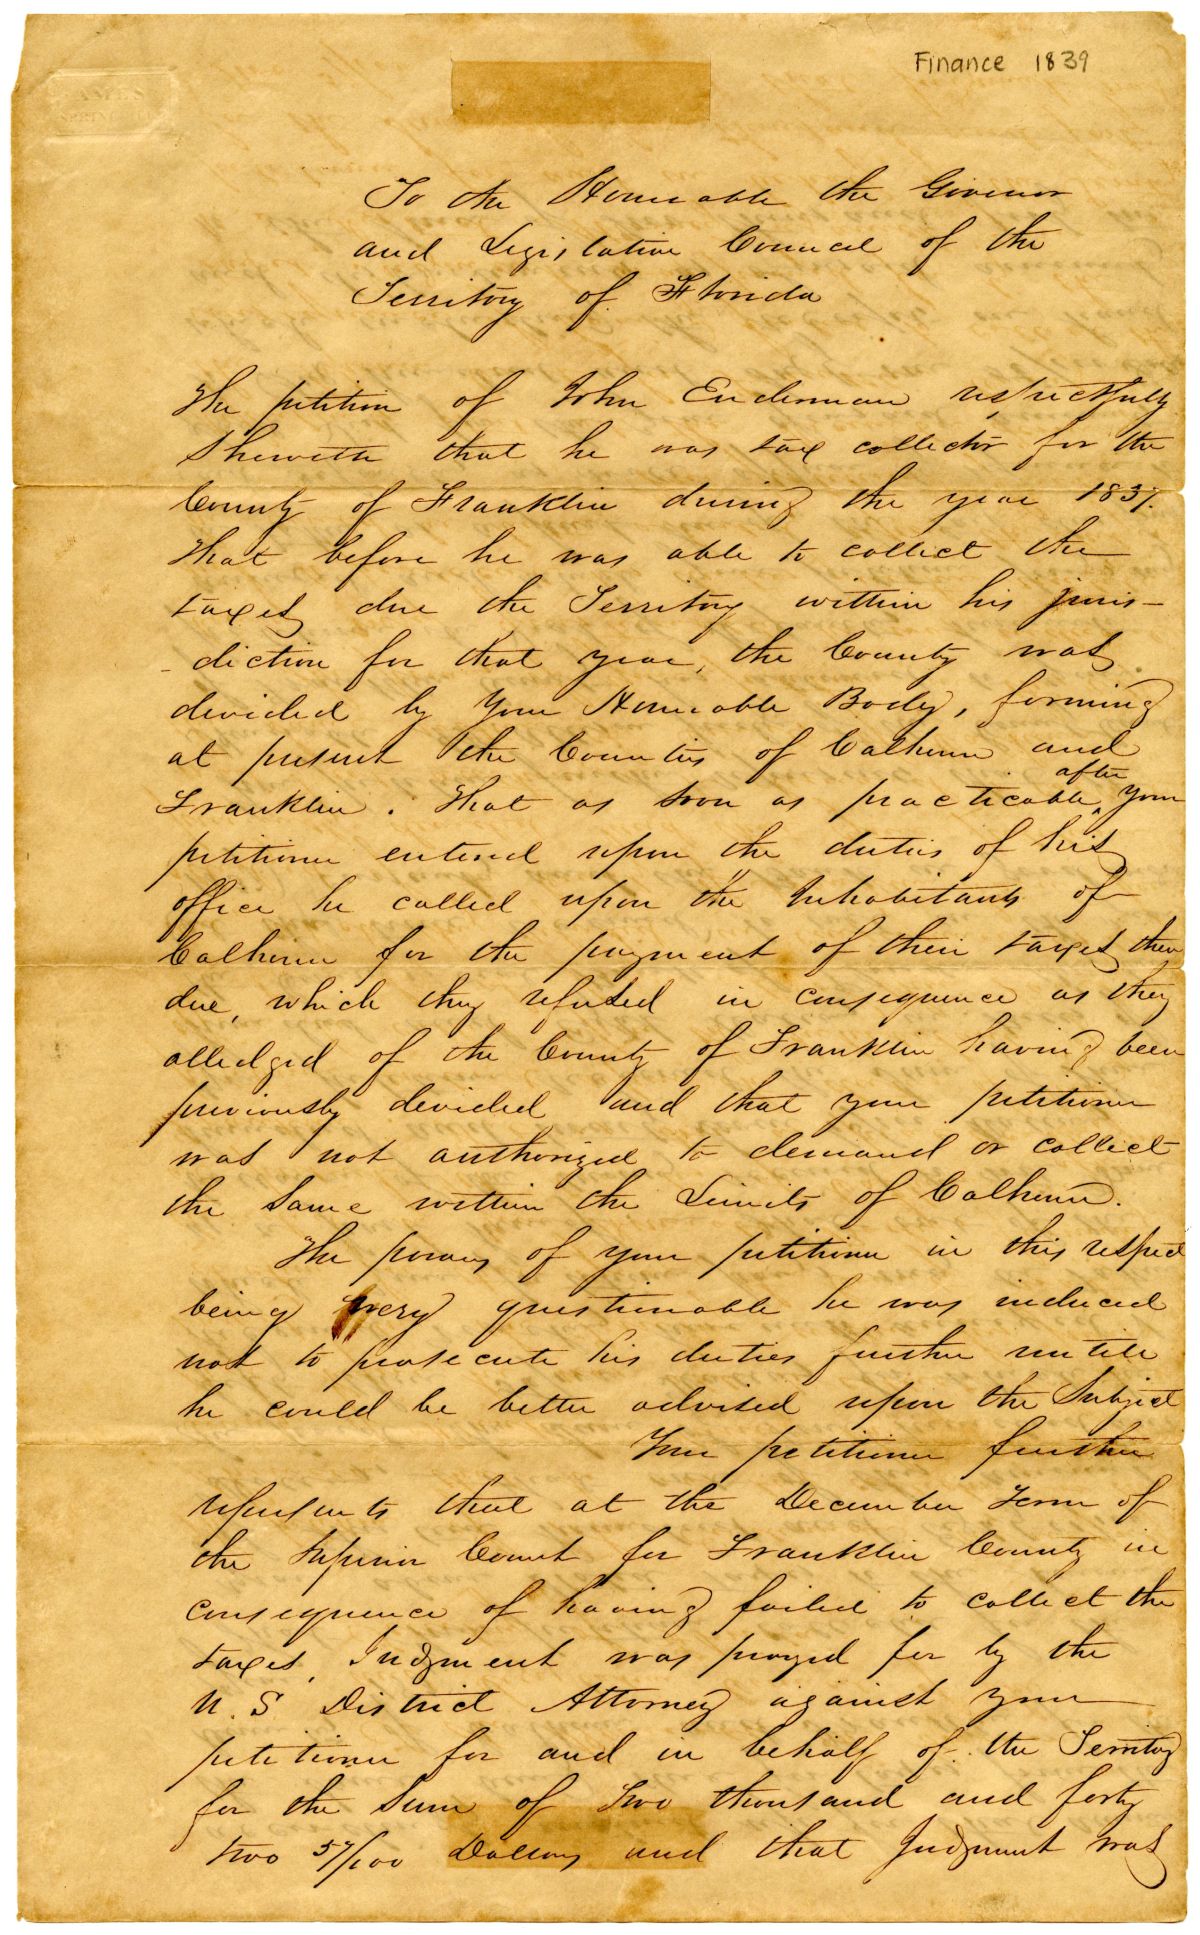 Finance 1839
To the Honorable the Govenor
and Legislative Council of the
Territory of Florida
The petition of John Enderman respectfully
Sheweth that he was tax collector for the
County of Franklin during the year 1837.
That before he was able to collect the
taxes due the Territory within his juris-
-diction for that year, the County was
devided by your Honorable Body, forming
at present the Counties of Calhoun and
Franklin. That as soon as practicable after your
petitioner entered upon the duties of his
office he called upon the Inhabitants of
Calhoun for the payment of their taxes then
due, which they refused in consequence as they
alledged of the County of Franklin having been
previously devided and that your petitioner
was not authorized to demand or collect
the same within the Limits of Calhoun.
The powers of your petitioner in this respect
being very questionable he was induced
not to prosecute his duties further untill
he could be better advised upon the Subject
Your petitioner further
represents that at the December Term of
the Superior Court for Franklin County in
consequence of having failed to collect the
taxes, Judgment was prayed for by the
U.S District Attorney against your
petitioner for and in behalf of the Territory
for the Sum of Two thousand and forty
two 57/100 Dollars and that Judgment was